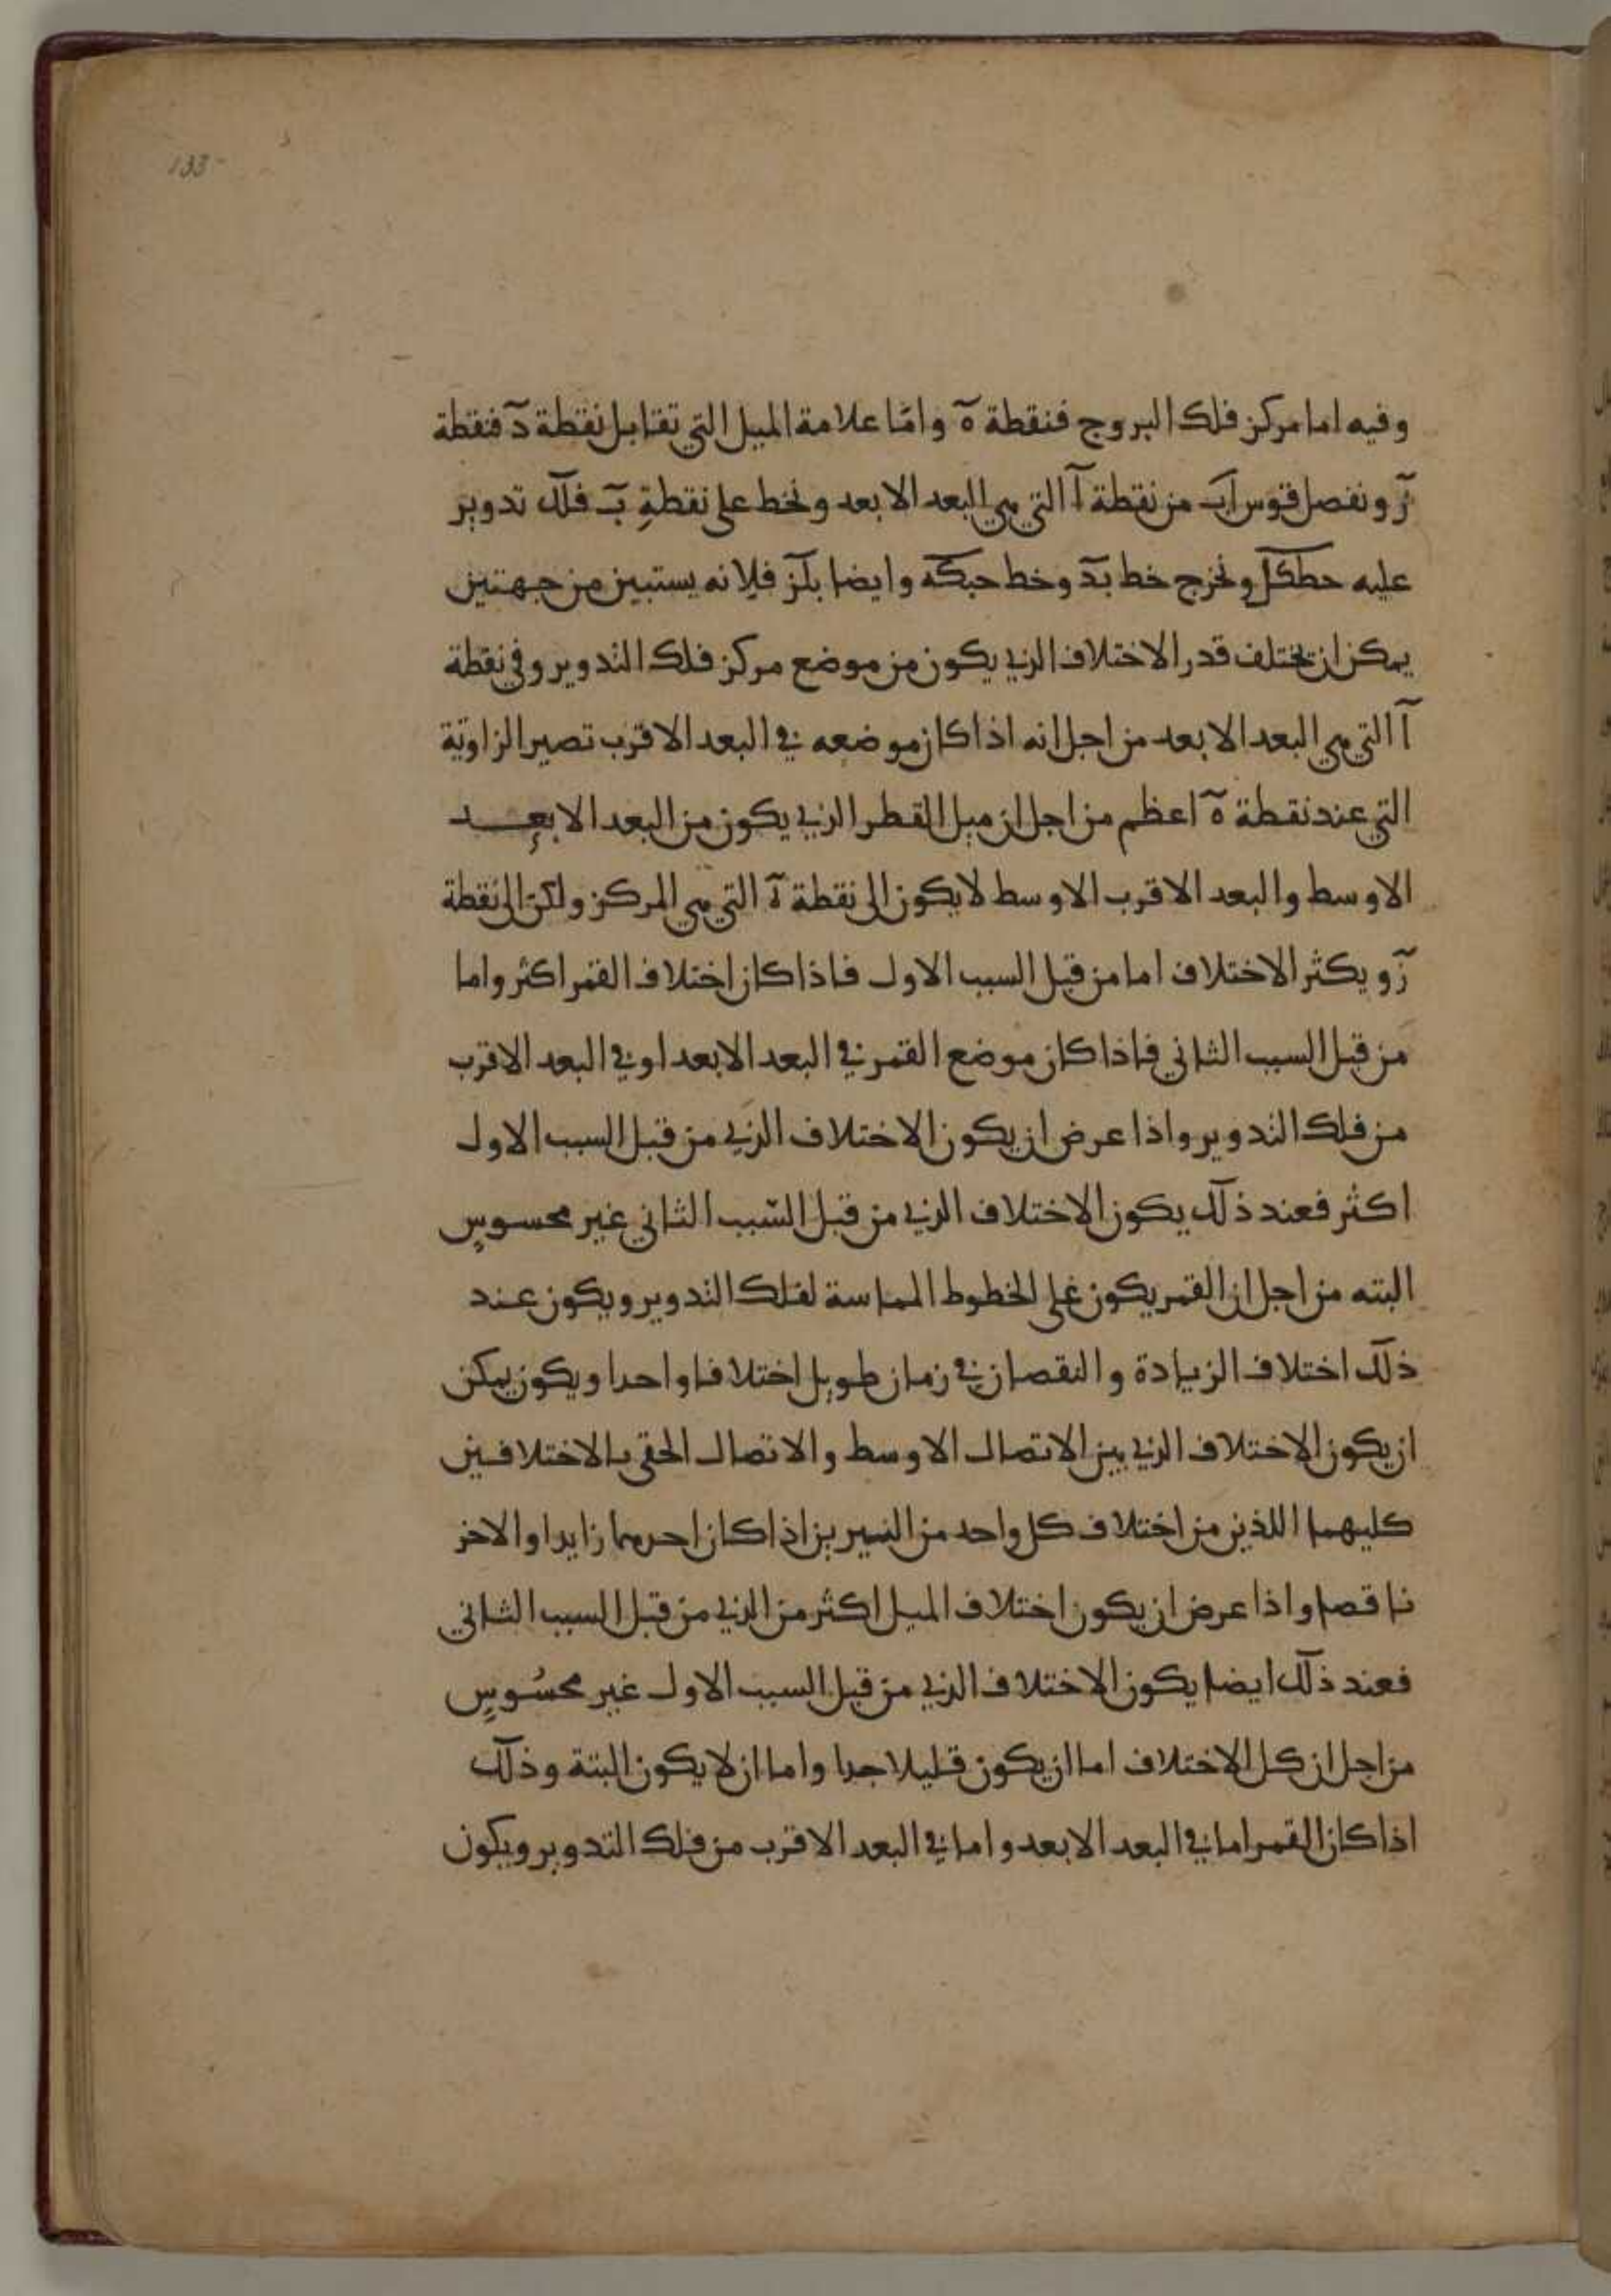 133
وفيه اما مركز فلك البروج فنقطة ه وامّا علامة الميل التي تقابل نقطة د فنقطة
ز ونفصل قوس اب من نقطة ا التي هي البعد الابعد ونخط على نقطةِ ب فلك تدوير
عليه حطكل ونخرج خط بد وخط حبكه وايضا بلز فلانه يستبين من جهتين
يمكن ان تختلف قدر الاختلاف الذي يكون من موضع مركز فلك التدوير وفي نقطة
ا التي هي البعد الابعد من اجل انه اذا كان موضعه في البعد الاقرب تصير الزاوية
التي عند نقطة ه اعظم من اجل ان ميل القطر الذي يكون من البعد الابعد
الاوسط والبعد الاقرب الاوسط لا يكون الى نقطة ه التي هي المركز ولكن الى نقطة
ز ويكثر الاختلاف اما من قبل السبب الاول فاذا كان اختلاف القمر اكثر واما
من قبل السبب الثاني فاذا كان موضع القمر في البعد الابعد او في البعد الاقرب
من فلك التدوير واذا عرض ان يكون الاختلاف الذي من قبل السبب الاول
اكثر فعند ذلك يكون الاختلاف الذي من قبل السّبب الثاني غير محسوسٍ
البته من اجل ان القمر يكون على الخطوط المماسة لفلك التدوير ويكون عند
ذلك اختلاف الزيادة والنقصان في زمان طويل اختلافا واحدا ويكون يمكن
ان يكون الاختلاف الذي بين الاتصال الاوسط والاتصال الحقي بالاختلافين
كليهما اللذين من اختلاف كل واحد من النيرين اذا كان احدهما زايدا والاخر
ناقصا واذا عرض ان يكون اختلاف الميل اكثر من الذي من قبل السبب الثاني
فعند ذلك ايضا يكون الاختلاف الذي من قبل السبب الاول غير محسُوسٍ
من اجل ان كل الاختلاف اما ان يكون قليلا جدا واما ان لا يكون البتة وذلك
اذا كان القمر اما في البعد الابعد واما في البعد الاقرب من فلك التدوير ويكون